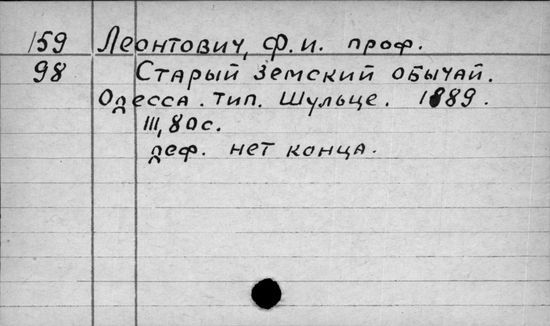 159 Леонтович, Ф. И. проф.
98 Старый земский обычай.
Одесса. Тип. Шульце. 1889.
III, 80 с.
деф. нет конца.